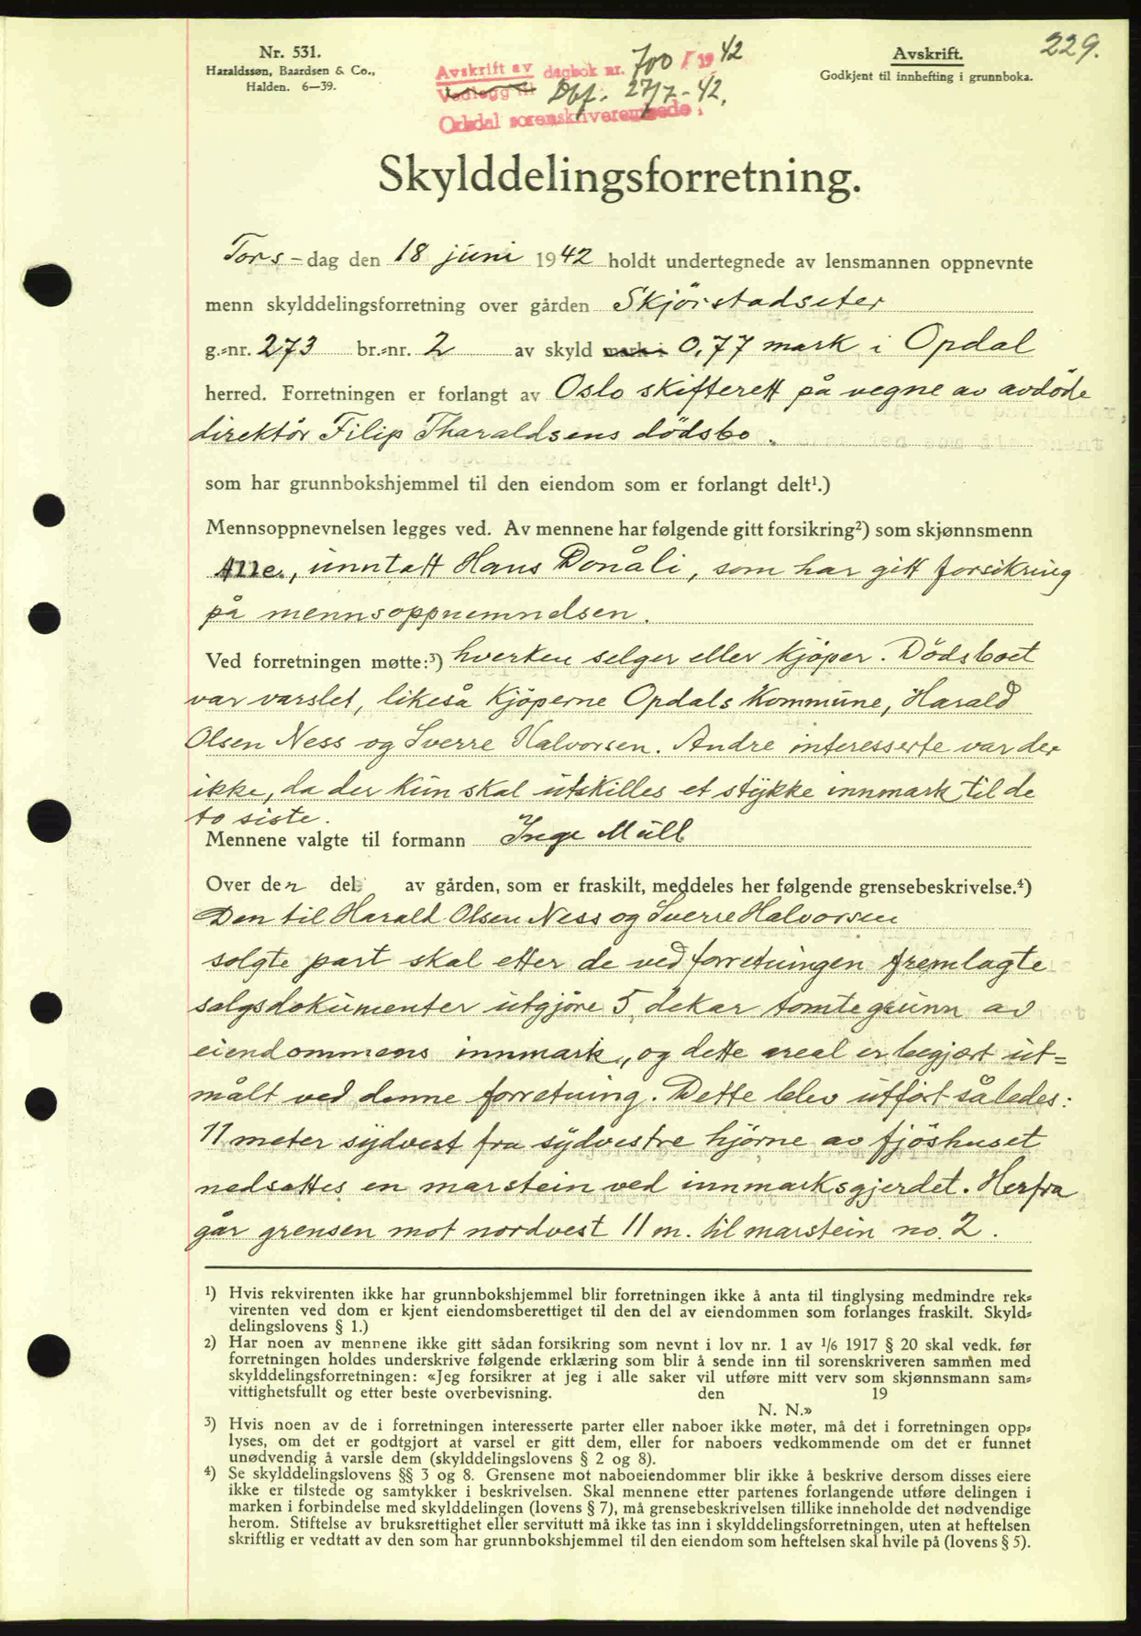 Nr. 531.
Haraldssøn, Baardsen & Co.,
Halden. 6—39.
Avskrift av dagbok nr. 700 / 1942
Vedlegg til Dbf. 27/7-42.
Orkdal sorenskriverembede.
Avskrift.
Godkjent til innhefting i grunnboka.
229.
Skylddelingsforretning.
Tors-dag den 18 juni 1942 holdt undertegnede av lensmannen oppnevnte
menn skylddelingsforretning over gården Skjörstadseter
g.-nr. 273 br.-nr. 2 av skyld mark i 0,77 mark i Opdal
herred. Forretningen er forlangt av Oslo skifterett på vegne av avdöde
direktör Filip Tharaldsens dödsbo.
som har grunnbokshjemmel til den eiendom som er forlangt delt¹.)
Mennsoppnevnelsen legges ved. Av mennene har følgende gitt forsikring²) som skjønnsmenn
Alle, unntatt Hans Donåli, som har gitt forsikring
på mennsoppnemndsen.
Ved forretningen møtte:³) hverken selger eller kjöper. Dödsboet
var varslet, likeså kjöperne Opdals kommune, Harald
Olsen Ness og Sverre Halvorsen. Andre interesserte var der
ikke, da der kun skal utskilles et stykke innmark til de
to siste.
Mennene valgte til formann Inge Müll
Over den del av gården, som er fraskilt, meddeles her følgende grensebeskrivelse.⁴)
Den til Harald Olsen Ness og Sverre Halvorsen
solgte part skal etter de ved forretningen fremlagte
salgsdokumenter utgjöre 5 dekar tomtegrunn av
eiendommens innmark, og dette areal er begjært ut=
målt ved denne forretning. Dette blev utfört således:
11 meter sydvest fra sydvestre hjörne av fjöshuset
nedsattes en marstein ved innmarksgjerdet. Herfra
går grensen mot nordvest 11 m. til marstein no. 2.
¹) Hvis rekvirenten ikke har grunnbokshjemmel blir forretningen ikke å anta til tinglysing medmindre rek-
virenten ved dom er kjent eiendomsberettiget til den del av eiendommen som forlanges fraskilt. Skyld-
delingslovens § 1.)
²) Har noen av mennene ikke gitt sådan forsikring som nevnt i lov nr. 1 av 1/6 1917 § 20 skal vedk. før
forretningen holdes underskrive følgende erklæring som blir å sende inn til sorenskriveren sammen med
skylddelingsforretningen: «Jeg forsikrer at jeg i alle saker vil utføre mitt verv som skjønnsmann sam-
vittighetsfullt og etter beste overbevisning. den 19
N. N.»
³) Hvis noen av de i forretningen interesserte parter eller naboer ikke møter, må det i forretningen opp-
lyses, om det er godtgjort at varsel er gitt dem, eller for naboers vedkommende om det er funnet
unødvendig å varsle dem (skylddelingslovens § 2 og 8).
⁴) Se skylddelingslovens §§ 3 og 8. Grensene mot naboeiendommer blir ikke å beskrive dersom disses eiere
ikke er tilstede og samtykker i beskrivelsen. Skal mennene etter partenes forlangende utføre delingen i
marken i forbindelse med skylddelingen (lovens § 7), må grensebeskrivelsen tillike inneholde det nødvendige
herom. Stiftelse av bruksrettighet eller servitutt må ikke tas inn i skylddelingsforretningen, uten at heftelsen
skriftlig er vedtatt av den som har grunnbokshjemmel til den eiendom som heftelsen skal hvile på (lovens § 5).